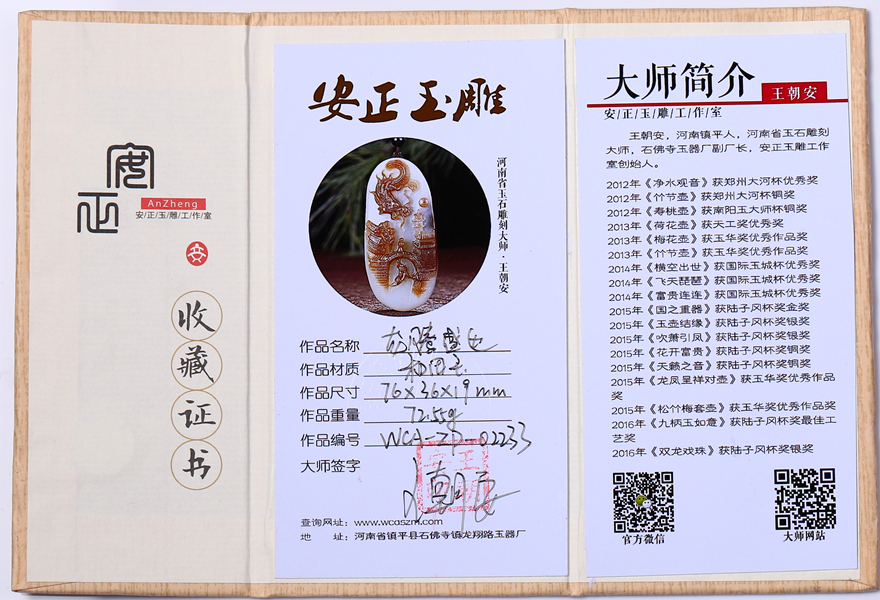 安正
AnZheng
安/正/玉/雕/工/作/室
安
收藏证书
安正玉雕
河南省玉石雕刻大师·王朝安
作品名称 龙腾盛世
作品材质 和田玉
作品尺寸 76×36×19mm
作品重量 72.55g
作品编号 WCA-ZP-02233
大师签字
查询网址：www.wcaszm.com
地 址：河南省镇平县石佛寺镇龙翔路玉器厂
大师简介 王朝安
安/正/玉/雕/工/作/室
王朝安，河南镇平人，河南省玉石雕刻
大师，石佛寺玉器厂副厂长，安正玉雕工作
室创始人。
2012年《净水观音》获郑州大河杯优秀奖
2012年《竹节壶》获郑州大河杯铜奖
2012年《寿桃壶》获南阳玉大师杯铜奖
2013年《荷花壶》获天工奖优秀奖
2013年《梅花壶》获玉华奖优秀作品奖
2013年《竹节壶》获玉华奖优秀作品奖
2014年《横空出世》获国际玉城杯优秀奖
2014年《飞天琵琶》获国际玉城杯优秀奖
2014年《富贵连连》获国际玉城杯优秀奖
2015年《国之重器》获陆子冈杯奖金奖
2015年《玉壶结缘》获陆子冈杯奖银奖
2015年《吹萧引凤》获陆子冈杯奖银奖
2015年《花开富贵》获陆子冈杯奖铜奖
2015年《天籁之音》获陆子冈杯奖铜奖
2015年《龙凤呈祥对壶》获玉华奖优秀作品
奖
2015年《松竹梅套壶》获玉华奖优秀作品奖
2016年《九柄玉如意》获陆子冈杯奖最佳工
艺奖
2016年《双龙戏珠》获陆子冈杯奖银奖
官方微信
大师网站